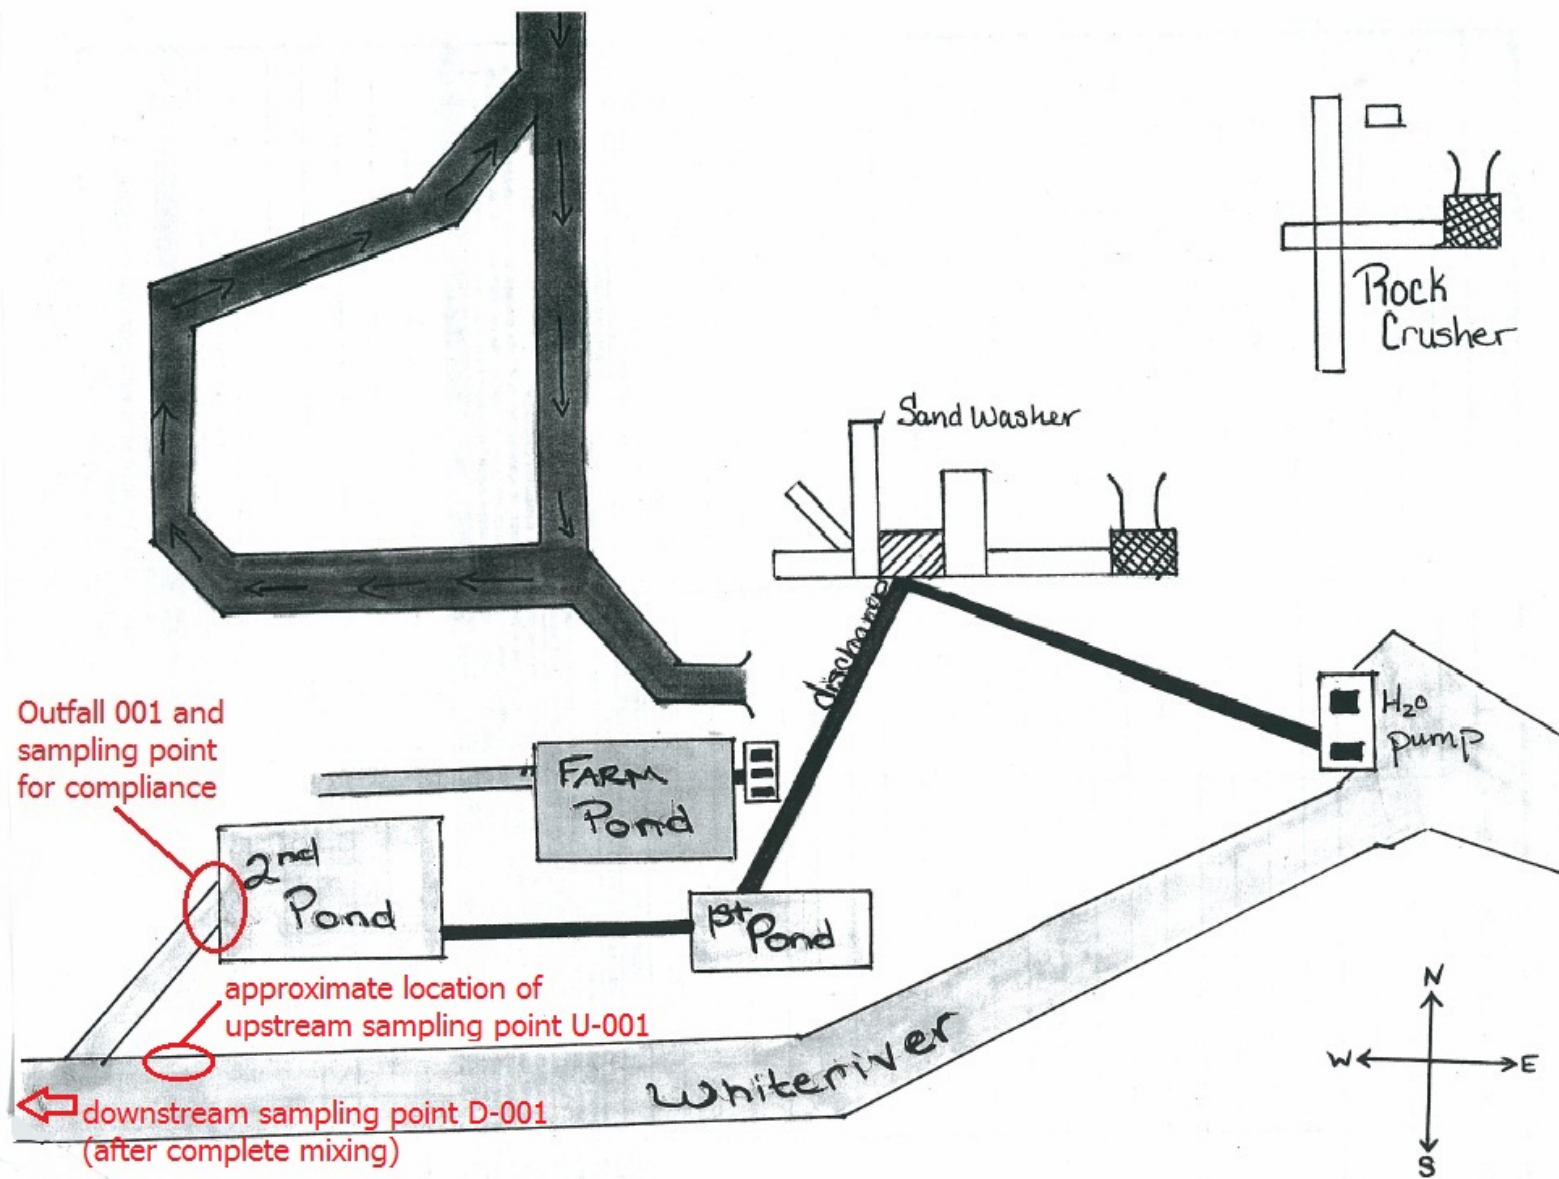 Rock
Crusher
Sand Washer
discharge
H₂O
pump
Outfall 001 and
sampling point
for compliance
FARM
Pond
2nd
Pond
1st Pond
approximate location of
upstream sampling point U-001
Whiteriver
downstream sampling point D-001
(after complete mixing)
N
W
E
S